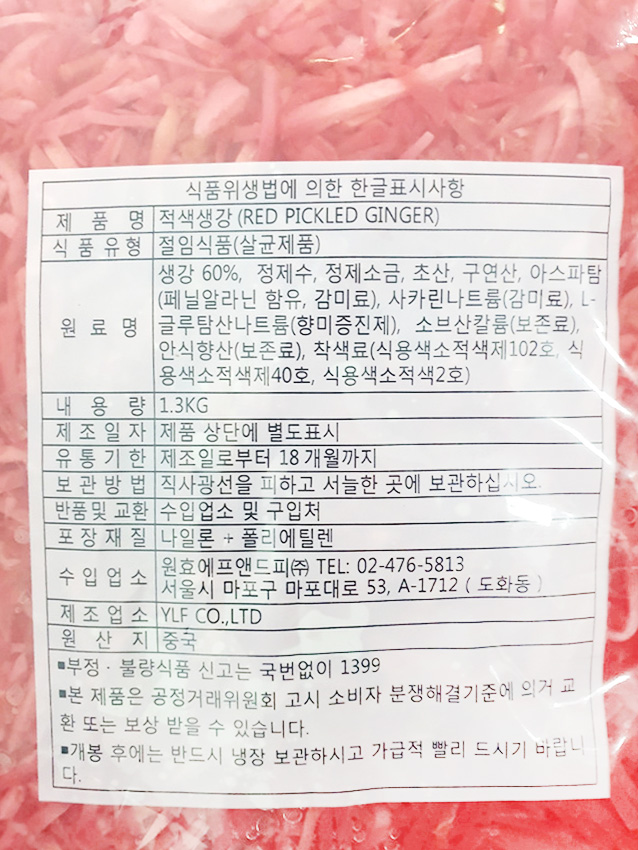 식품위생법에 의한 한글표시사항
제 품 명 적색생강(RED PICKLED GINGER)
식 품 유 형 절임식품(살균제품)
원 료 명 생강 60%, 정제수, 정제소금, 초산, 구연산, 아스파탐
(페닐알라닌 함유, 감미료), 사카린나트륨(감미료), L-
글루탐산나트륨(향미증진제), 소브산칼륨(보존료),
안식향산(보존료), 착색료(식용색소적색제102호, 식
용색소적색제40호, 식용색소적색2호)
내 용 량 1.3KG
제 조 일 자 제품 상단에 별도표시
유 통 기 한 제조일로부터 18개월까지
보 관 방 법 직사광선을 피하고 서늘한 곳에 보관하십시오.
반품및 교환 수입업소 및 구입처
포 장 재 질 나일론 + 폴리에틸렌
수 입 업 소 원호에프앤드피㈜ TEL: 02-476-5813
서울시 마포구 마포대로 53, A-1712 ( 도화동 )
제 조 업 소 YLF CO.,LTD
원 산 지 중국
■부정 · 불량식품 신고는 국번없이 1399
■본 제품은 공정거래위원회 고시 소비자 분쟁해결기준에 의거 교
환 또는 보상 받을 수 있습니다.
■개봉 후에는 반드시 냉장 보관하시고 가급적 빨리 드시기 바랍니
다.